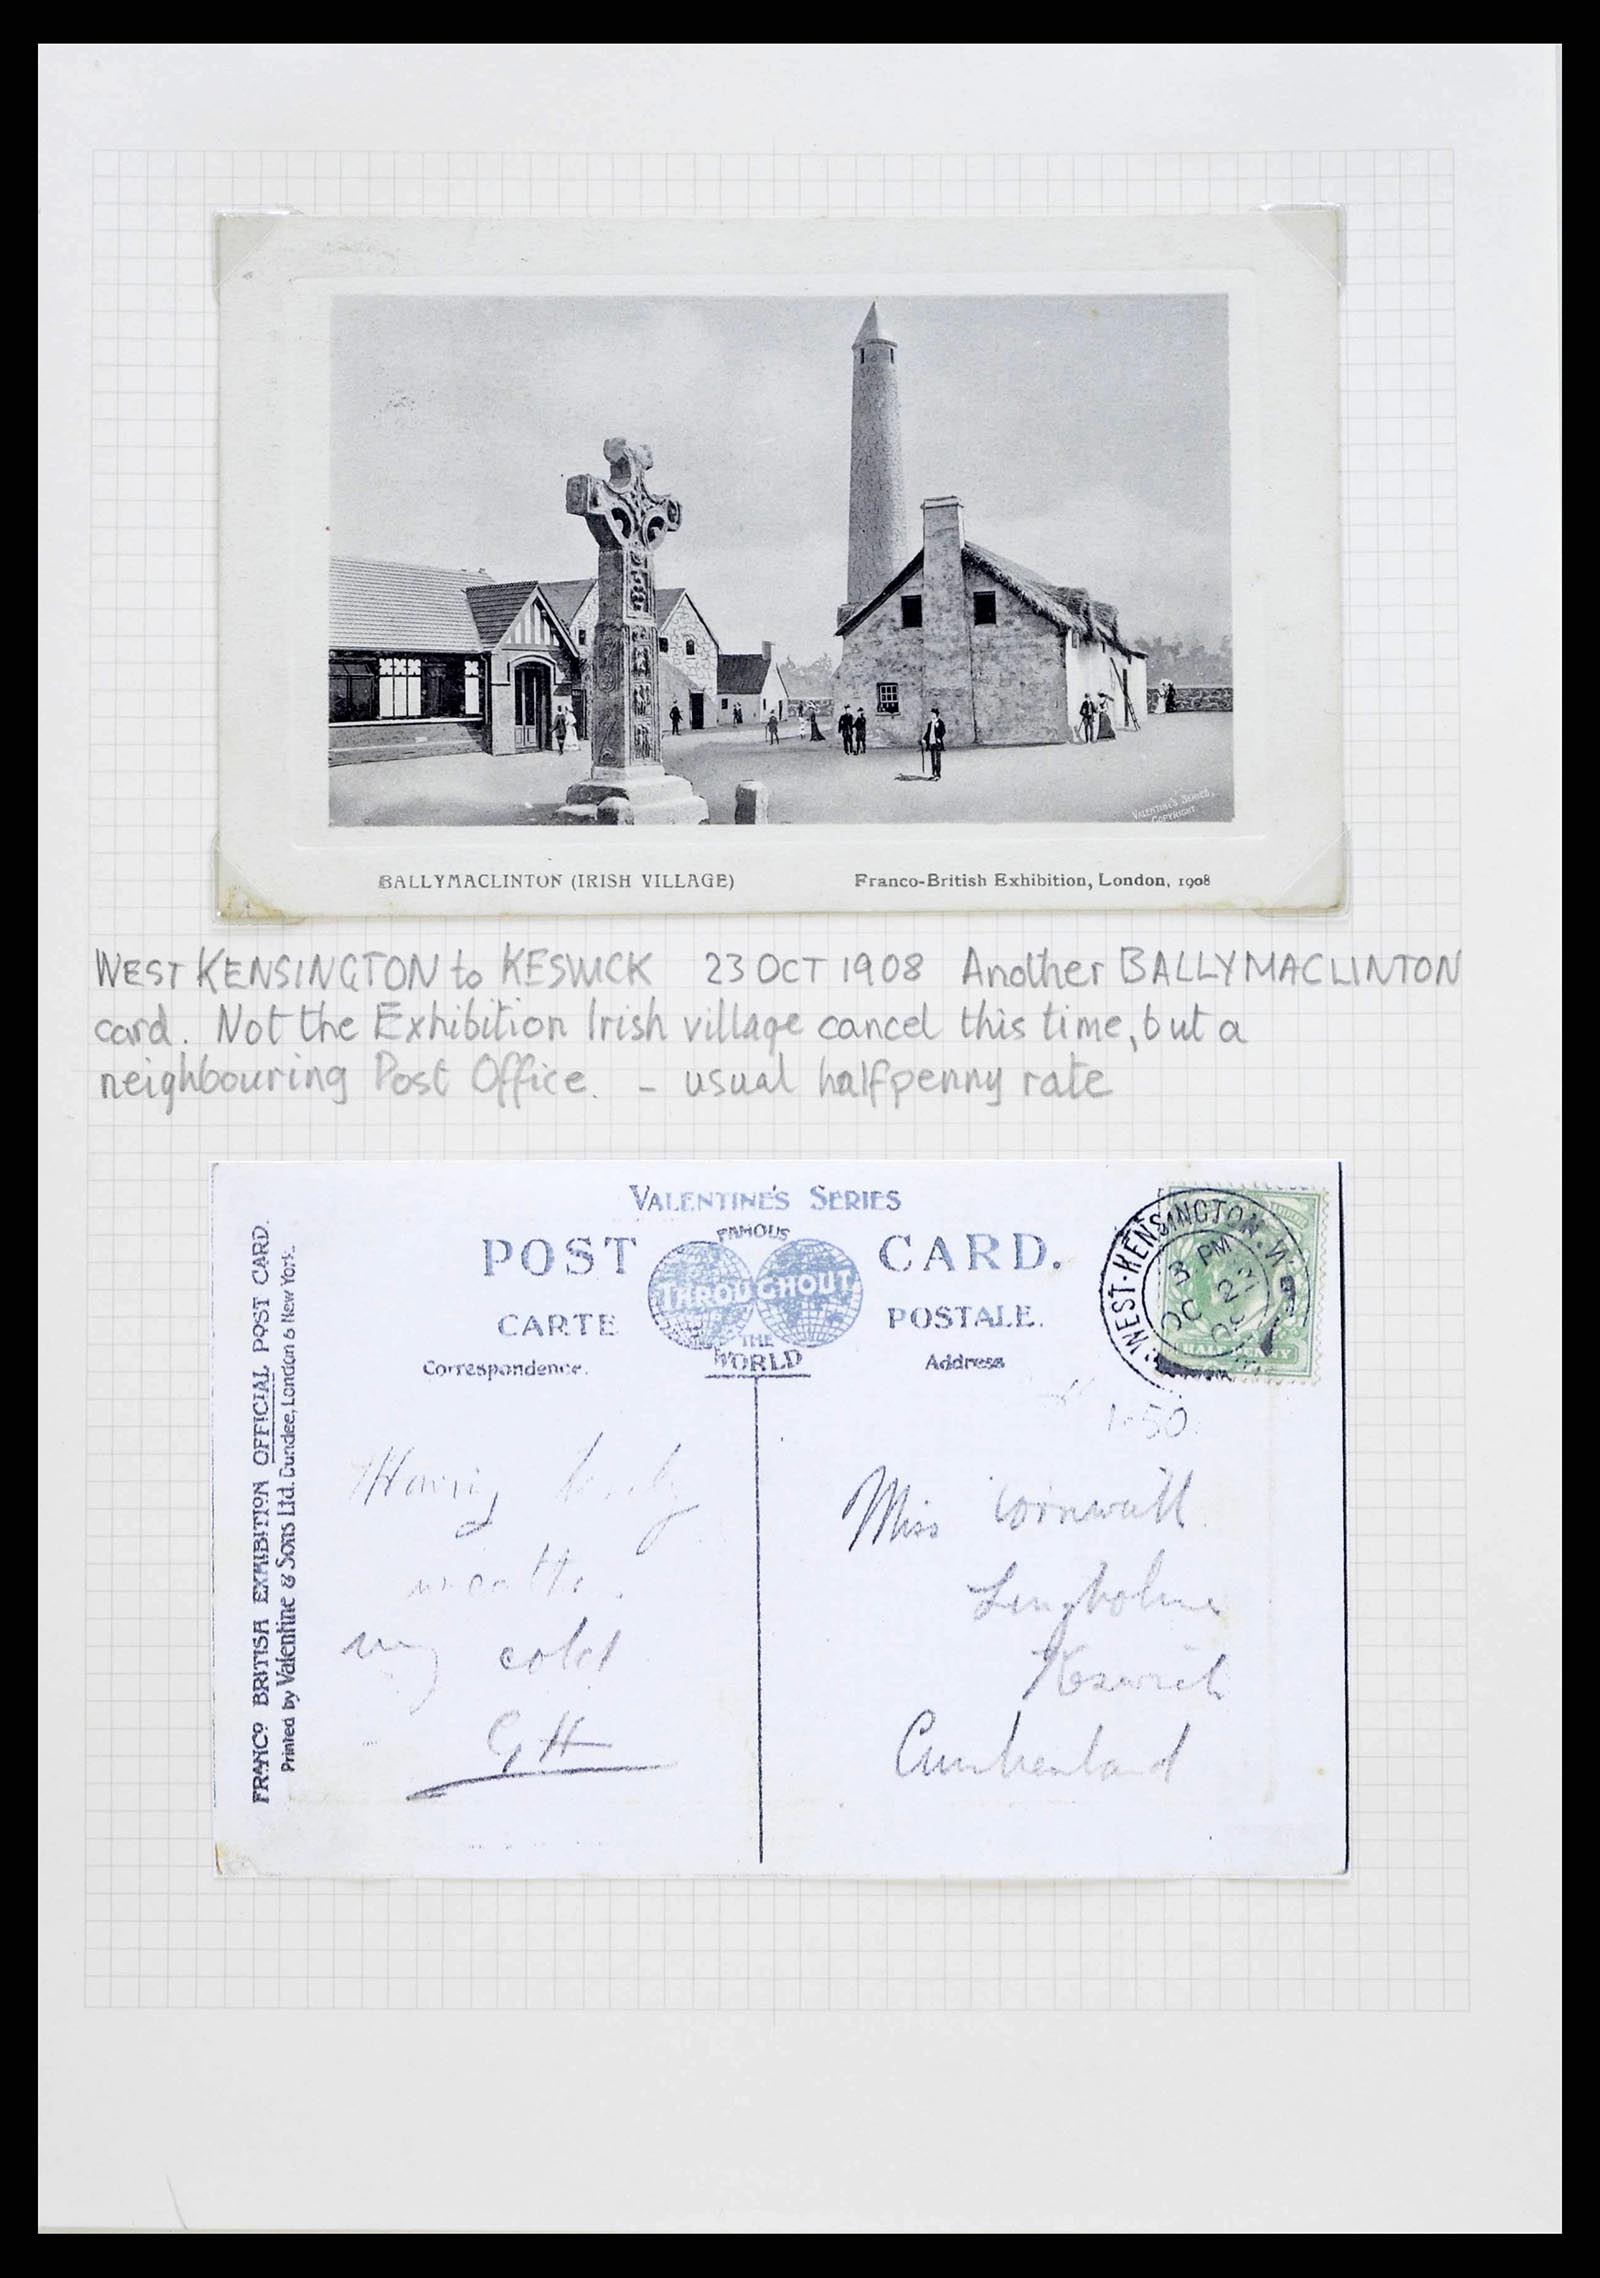 VALENTINE'S SERIES.
COPYRIGHT
BALLYMACLINTON (IRISH VILLAGE)
Franco-British Exhibition, London, 1908
WEST KENSINGTON to KESWICK 23 OCT 1908 Another BALLYMACLINTON
card. Not the Exhibition Irish village cancel this time, but a
neighbouring Post Office. – usual halfpenny rate
FRANCO BRITISH EXHIBITION OFFICIAL POST CARD.
Printed by Valentine & Sons Ltd. Dundee, London & New York.
VALENTINE'S SERIES
POST CARD.
FAMOUS
THROUGHOUT
THE
WORLD
CARTE POSTALE.
Correspondence.
Address
WEST·KENSINGTON.W
3 PM
OC 23
08
HALFPENNY
1-50
Having
my cold
GH
Miss Cornwall
Lingholme
Keswick
Cumberland